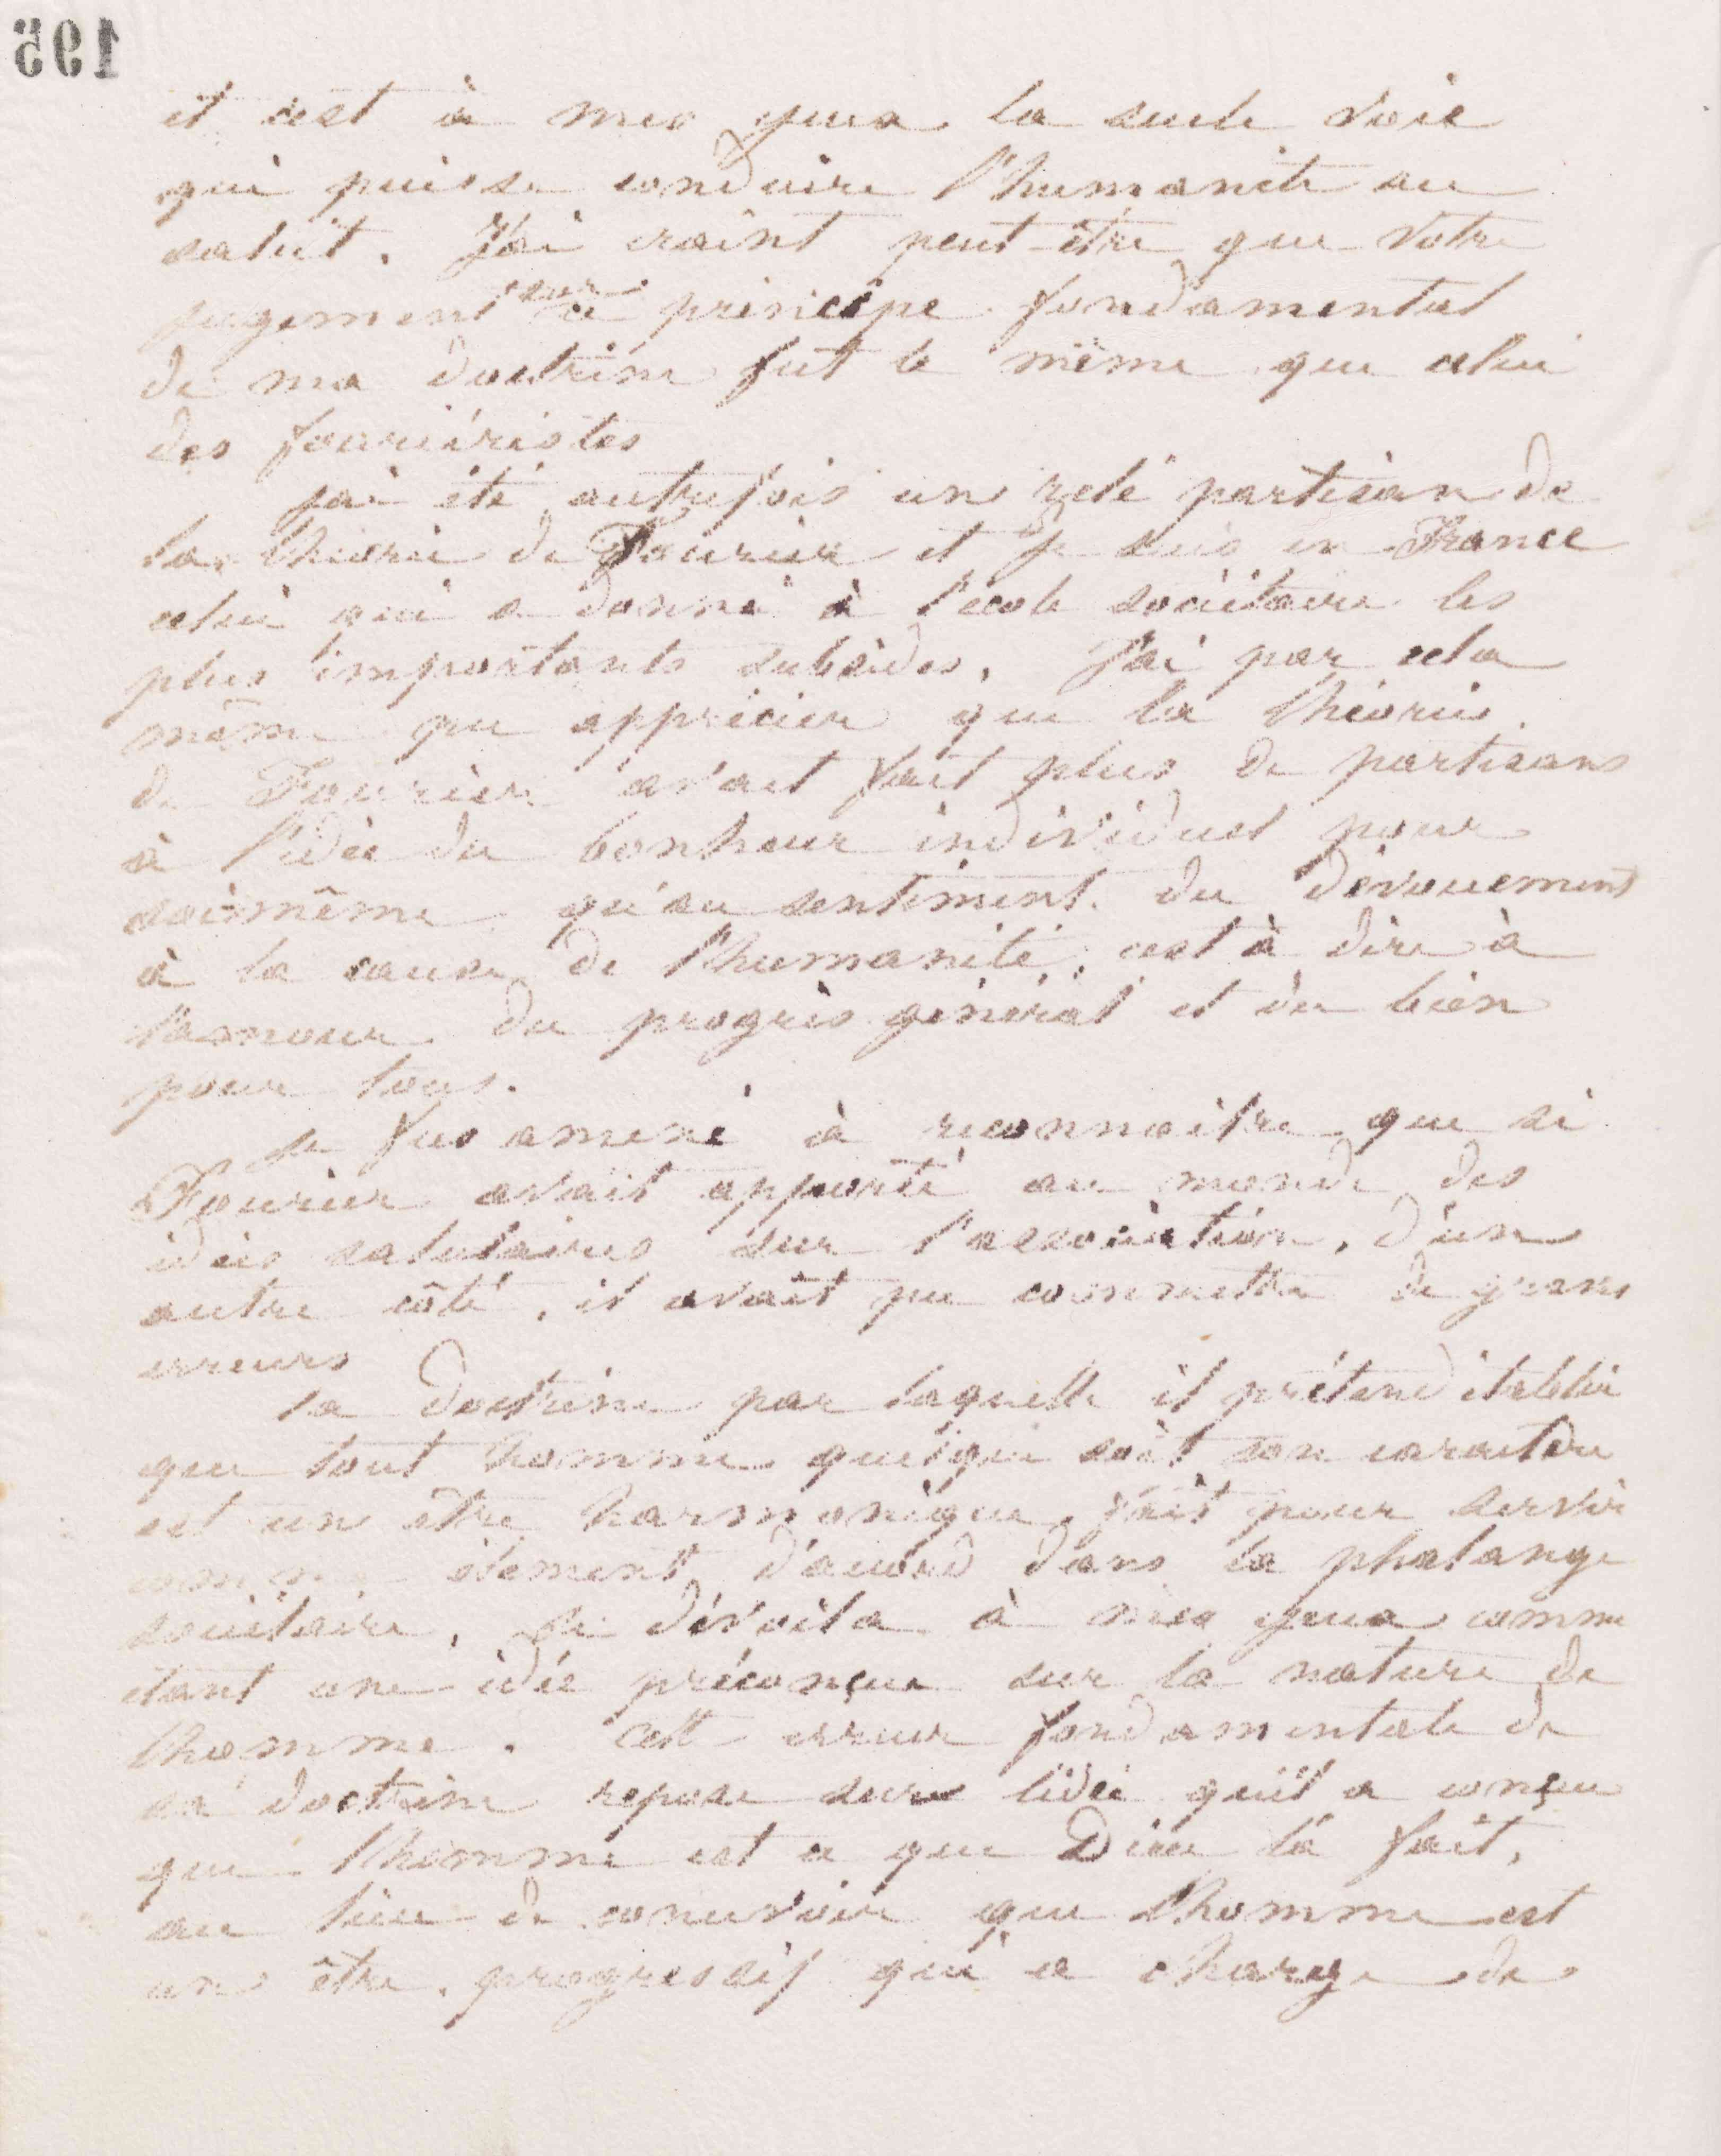 195
et c'est à mes yeux la seule voie
qui puisse conduire l'humanité au
salut. J'ai craint peut-être que votre
jugement sur ce principe fondamental
de ma doctrine fut le même que celui
des fouriéristes
J'ai été autrefois un zélé partisan de
la théorie de Fourier et je suis en France
celui qui a donné à l'école sociétaire les
plus importants subsides. J'ai par cela
même pu apprécier que la théorie
de Fourier avait fait plus de partisans
à l'idée du bonheur individuel pour
soi-même qu'au sentiment du dévouement
à la cause de l'humanité, c'est à dire à
l'amour du progrès général et du bien
pour tous.
Je fus amené à reconnaître que si
Fourier avait apporté au monde des
idées salutaires sur l'association, d'un
autre côté, il avait pu commettre de graves
erreurs
La doctrine par laquelle il prétend établir
que tout homme quelque soit son caractère
est un être harmonique, fait pour servir
comme élément d'accord dans la phalange
sociétaire, se dévoila à mes yeux comme
étant une idée préconçue sur la nature de
l'homme. Cette erreur fondamentale de
sa doctrine repose sur l'idée qu'il a conçue
que l'homme est ce que Dieu l'a fait,
au lieu de concevoir que l'homme est
un être progressif qui a charge de